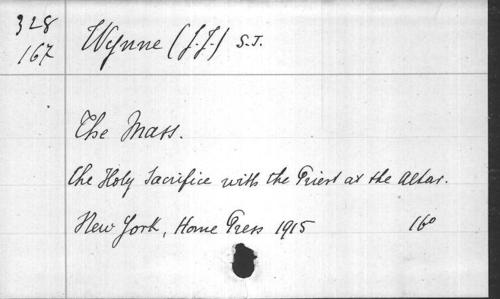 328
167
Wynne (J.J.) S.J.
The Mass.
The Holy Sacrifice with the Priest at the Altar.
New York, Home Press 1915 16°